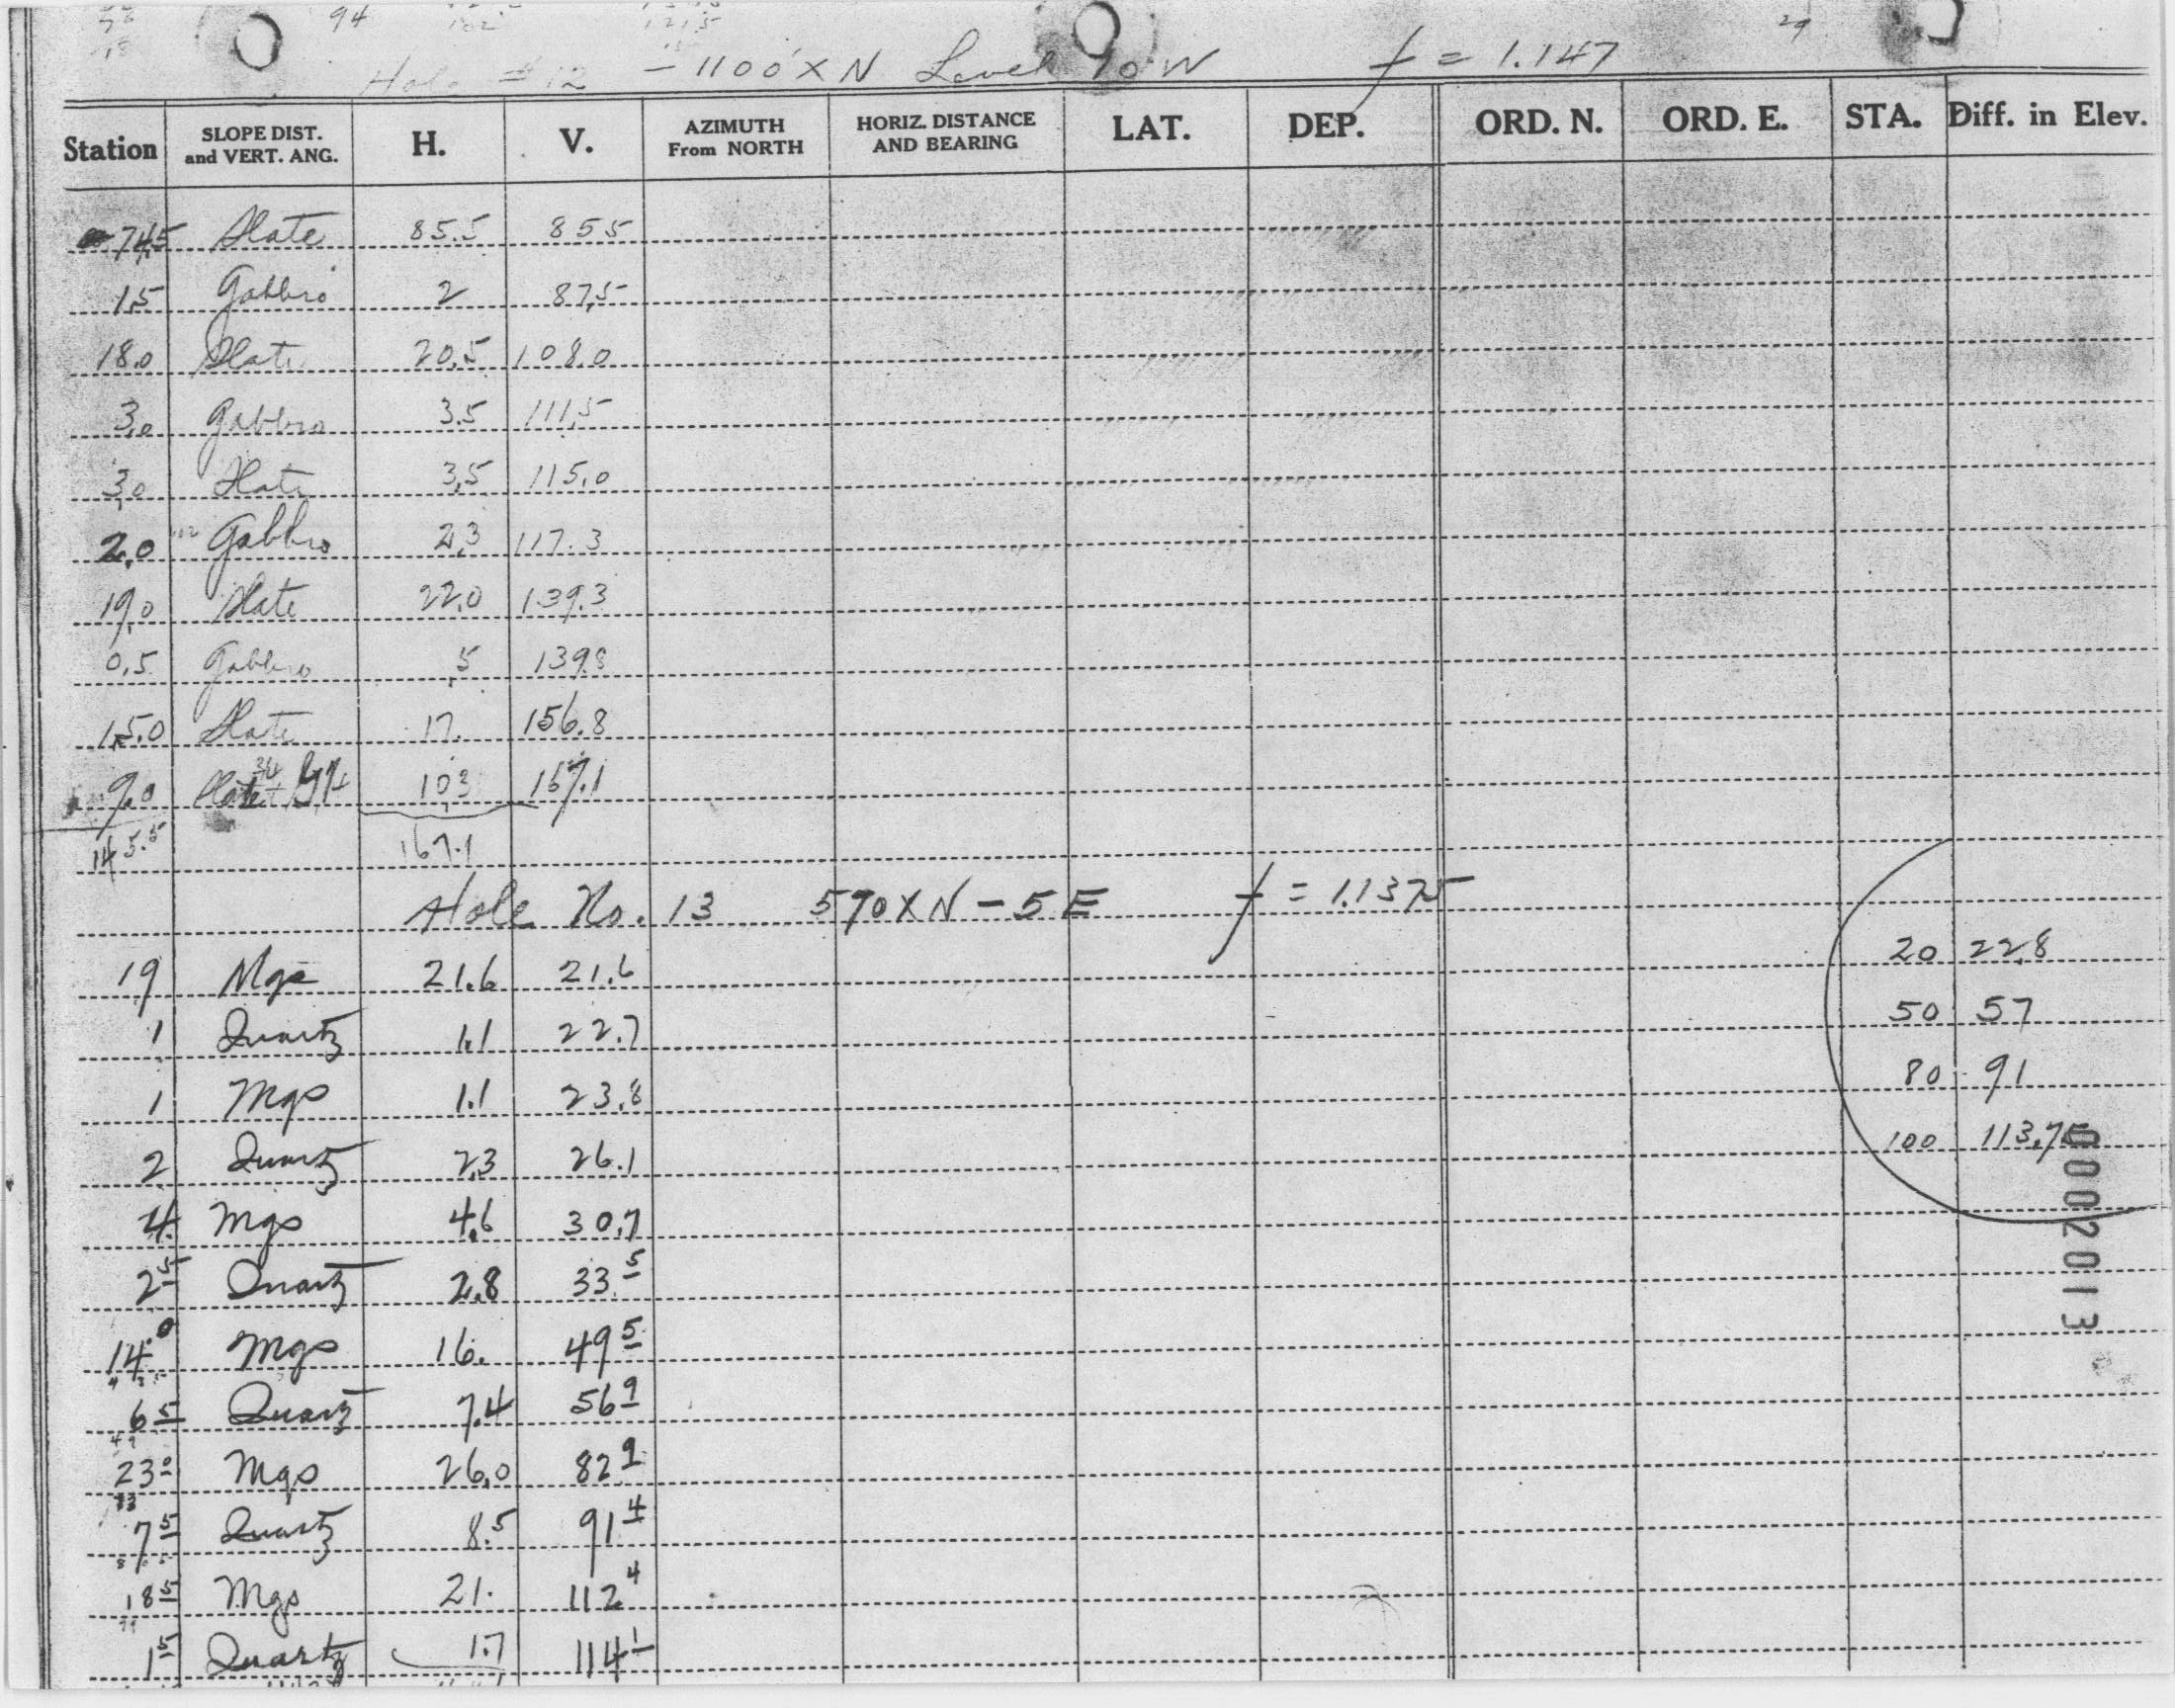 94
Hole #12 - 1100' X N Level 90 W f = 1.147 29
Station SLOPE DIST. and VERT. ANG. H. V. AZIMUTH From NORTH HORIZ. DISTANCE AND BEARING LAT. DEP. ORD. N. ORD. E. STA. Diff. in Elev.
74.5 Slate 85.5 855
1.5 Gabbro 2 87.5
18.0 Slate 20.5 108.0
3.0 Gabbro 3.5 111.5
3.0 Slate 3.5 115.0
2.0 Gabbro 2.3 117.3
19.0 Slate 22.0 139.3
0.5 Gabbro .5 139.8
15.0 Slate 17. 156.8
9.0 Slate + 10.3 167.1
145.5 167.1
Hole No. 13 590 X N - 5 E f = 1.1375
19 Mgs 21.6 21.6 20 22.8
1 Quartz 1.1 22.7 50 57
1 Mgs 1.1 23.8 80 91
2 Quartz 2.3 26.1 100 113.75
4 Mgs 4.6 30.7
2 5 Quartz 2.8 33 5
14.0 Mgs 16. 49 5
6 5 Quartz 7.4 56 9
23 0 Mgs 26.0 82 9
7 5 Quartz 8.5 91 4
18 5 Mgs 21. 112 4
1 5 Quartz 1.7 114 1
0002013